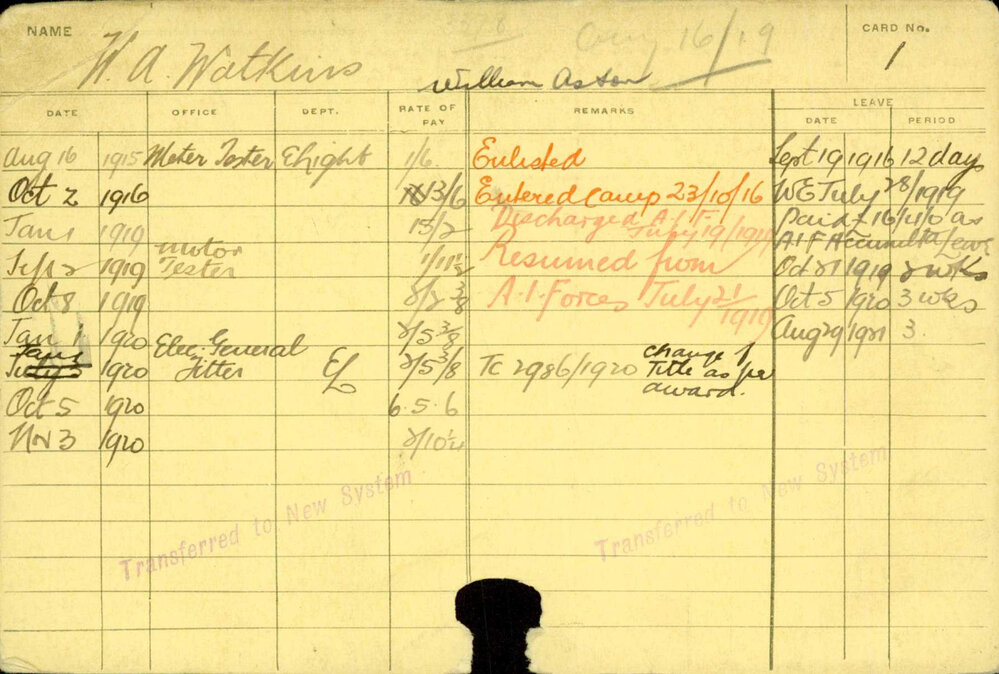 NAME
W. A. Watkins
William Aston
Aug 16/19
CARD No.
1
DATE OFFICE DEPT. RATE OF PAY REMARKS LEAVE
DATE PERIOD
Aug 16 1915 Meter Tester ELight 1/6 Enlisted Sept 19 1916 12 days
Oct 2 1916 13/6 Entered Camp 23/10/16 WE July 28/1919
Jan 1 1919 15/2 Discharged A.I.F. July 19/1919 Paid £16/11/0 as
A I F Accumulta/Leave
Sept 2 1919 Motor Tester 1/11½ Resumed from Oct 21 1919 2 wks
Oct 8 1919 2/2 3/8 A.I. Forces July 21/1919 Oct 5 1920 3 wks
Jan 1 1920 2/5 3/8 Aug 29 1921 3.
Jan 1 1920 Elec. General Fitter EL 2/5 3/8 TC 2986/1920 Change of Title as per award.
Oct 5 1920 6.5.6
Nov 3 1920 2/10¼
Transferred to New System
Transferred to New System